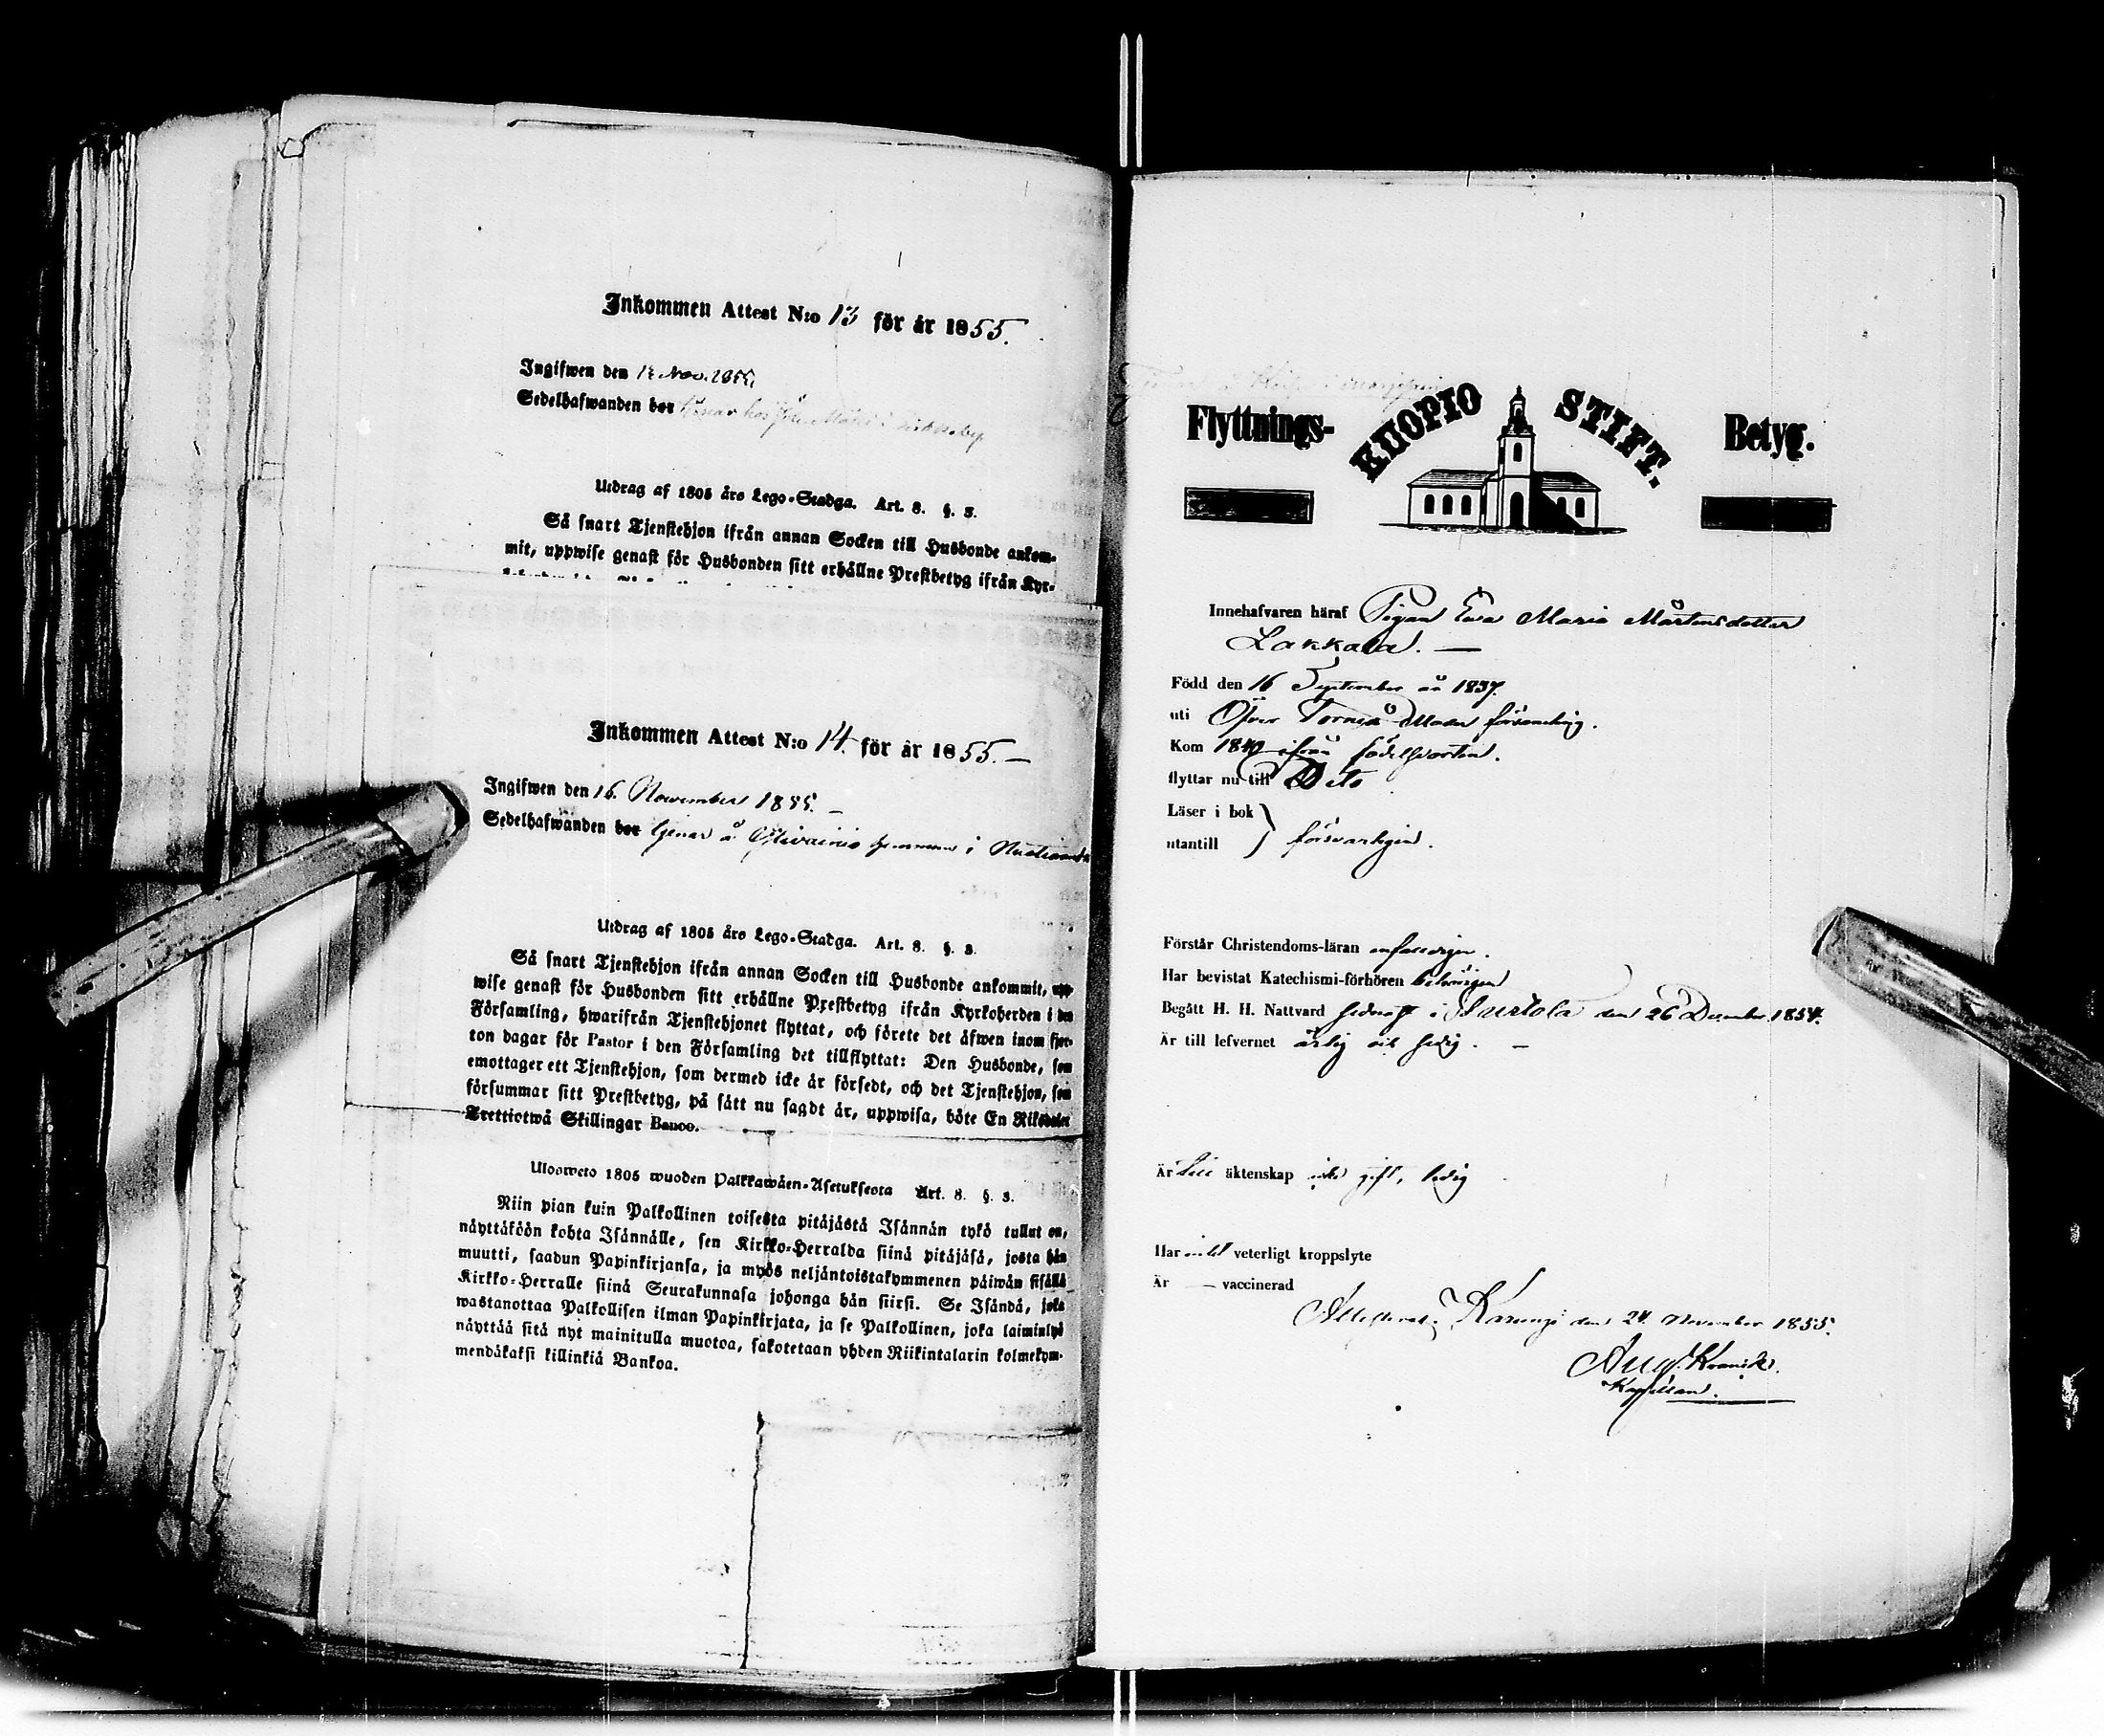 Inkommen Attest N:o 13 för år 1855.
Ingifwen den 12 Nov. 1855.
Sedelhafwanden bor tjenar hos
Utdrag af 1805 års Lego-Stadga. Art. 8. §. 3.
Så snart Tjenstehjon ifrån annan Socken till Husbonde ankom-
mit, uppwise genast för Husbonden sitt erhållne Prestbetyg ifrån Kyr-
Inkommen Attest N:o 14. för år 1855. —
Ingifwen den 16. November 1855. —
Sedelhafwanden bor tjenar å hemman i
Utdrag af 1805 års Lego-Stadga. Art. 8. §. 3.
Så snart Tjenstehjon ifrån annan Socken till Husbonde ankommit, upp-
wise genast för Husbonden sitt erhållne Prestbetyg ifrån Kyrkoherden i den
Församling, hwarifrån Tjenstehjonet flyttat, och förete det äfwen inom fjor-
ton dagar för Pastor i den Församling det tillflyttat: Den Husbonde, som
emottager ett Tjenstehjon, som dermed icke är försedt, och det Tjenstehjon, som
försummar sitt Prestbetyg, på sätt nu sagdt är, uppwisa, böte En Riksdaler
Trettiotwå Skillingar Banco.
Ulosweto 1805 wuoden Palkkawäen-Asetuksesta Art. 8. §. 3.
Niin pian kuin Palkollinen toisesta pitäjästä Isännän tykö tullut on,
näyttäköön kohta Isännälle, sen Kirkko-Herralda siinä pitäjäsä, josta hän
muutti, saadun Papinkirjansa, ja myös neljäntoistakymmenen päiwän sisällä
Kirkko-Herralle siinä Seurakunnasa johonga hän siirsi. Se Isändä, joka
wastanottaa Palkollisen ilman Papinkirjata, ja se Palkollinen, joka laiminlyö
näyttää sitä nyt mainitulla muotoa, sakotetaan yhden Riikintalarin kolmekym-
mendäkaksi killinkiä Bankoa.
Flyttnings- KUOPIO STIFT. Betyg.
Innehafvaren häraf Pigan Eva Maria Mårtensdotter
Lakkala. —
Född den 16 September år 1837.
uti Öfver Torneå Moder församling.
Kom 1840 ifrån födelseorten.
flyttar nu till Dito
Läser i bok
utantill } försvarligen.
Förstår Christendoms-läran enfaldigen.
Har bevistat Katechismi-förhören behörigen
Begått H. H. Nattvard sednast i Turtola den 26 December 1854.
Är till lefvernet ärlig och sedig. —
Är till äktenskap icke gift, ledig
Har intet veterligt kroppslyte
Är — vaccinerad
Attesterat; Karungi den 24 November 1855.
Aug.
Kapellan.